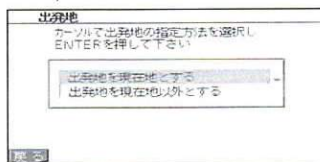 出発地
カーソルで出発地の指定方法を選択し
ENTERを押して下さい
出発地を現在地とする
出発地を現在地以外とする
戻る